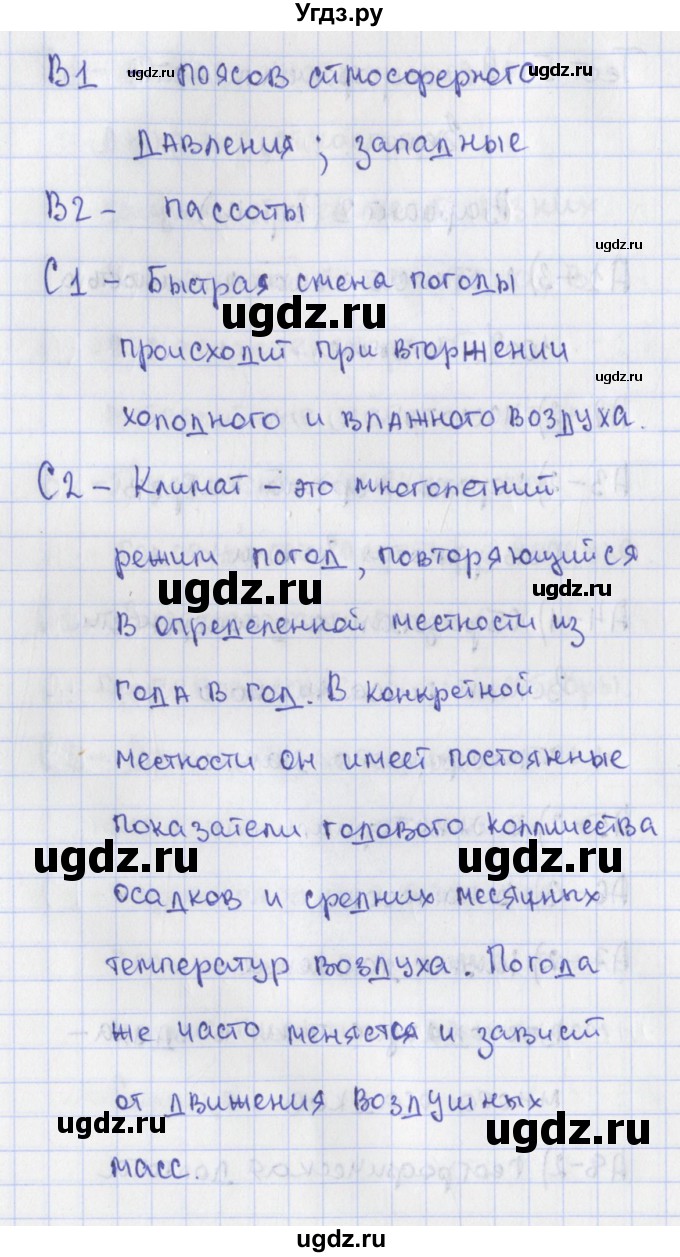 Угдз.ру
В1 - поясов атмосферного
давления; западные
В2 - пассаты
С1 - Быстрая смена погоды
происходит при вторжении
холодного и влажного воздуха.
С2 - Климат - это многолетний
режим погод, повторяющийся
в определенной местности из
года в год. В конкретной
местности он имеет постоянные
показатели годового колличества
осадков и средних месячных
температур воздуха. Погода
же часто меняется и зависит
от движения воздушных
масс.
ugdz.ru